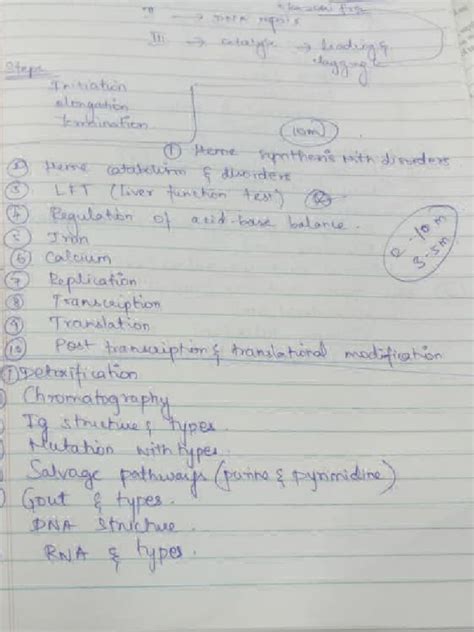 II → DNA repair
III → catalyse → leading &
lagging
Steps
Initiation
elongation
termination
10m
① Heme synthesis with disorders
② Heme catabolism & disorders
③ LFT (liver function test)
④ Regulation of acid-base balance.
⑤ Iron
⑥ Calcium
2 - 10 m
3 - 5 m
⑦ Replication
⑧ Transcription
⑨ Translation
⑩ Post transcription & translational modification
① Detoxification
Chromatography
Ig structure & types.
Mutation with types.
Salvage pathways (purine & pyrimidine)
Gout & types.
DNA structure.
RNA & types.